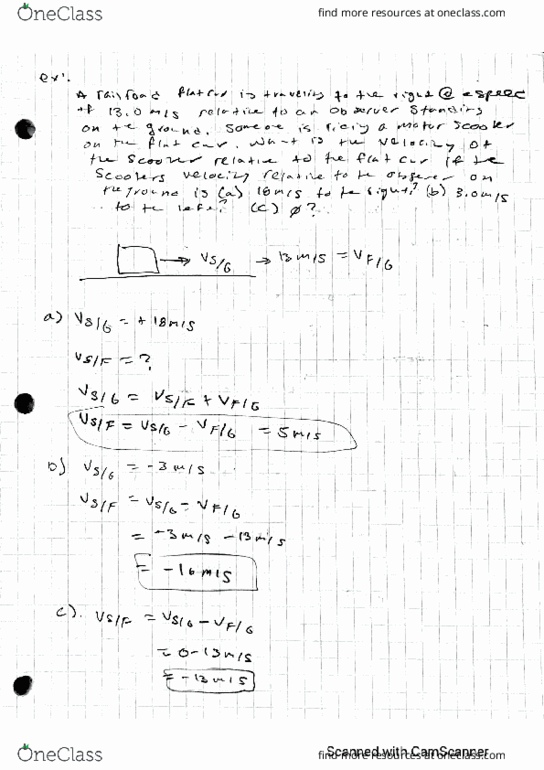 OneClass
find more resources at oneclass.com
ex'.
A railroad flatcar is traveling to the right @ a speed
of 13.0 m/s relative to an observer standing
on the ground. Someone is riding a motor scooter
on the flat car. What is the velocity of
the scooter relative to the flat car if the
scooters velocity relative to the observer on
the ground is (a) 18m/s to the right? (b) 3.0m/s
to the left? (c) ø?
→ VS/G → 13 m/s = VF/G
a) VS/G = + 18m/s
VS/F = ?
VS/G = VS/F + VF/G
VS/F = VS/G - VF/G = 5m/s
b) VS/G = -3 m/s
VS/F = VS/G - VF/G
= -3m/s -13m/s
= -16m/s
c). VS/F = VS/G - VF/G
= 0-13m/s
= -13m/s
Scanned with CamScanner
OneClass
find more resources at oneclass.com